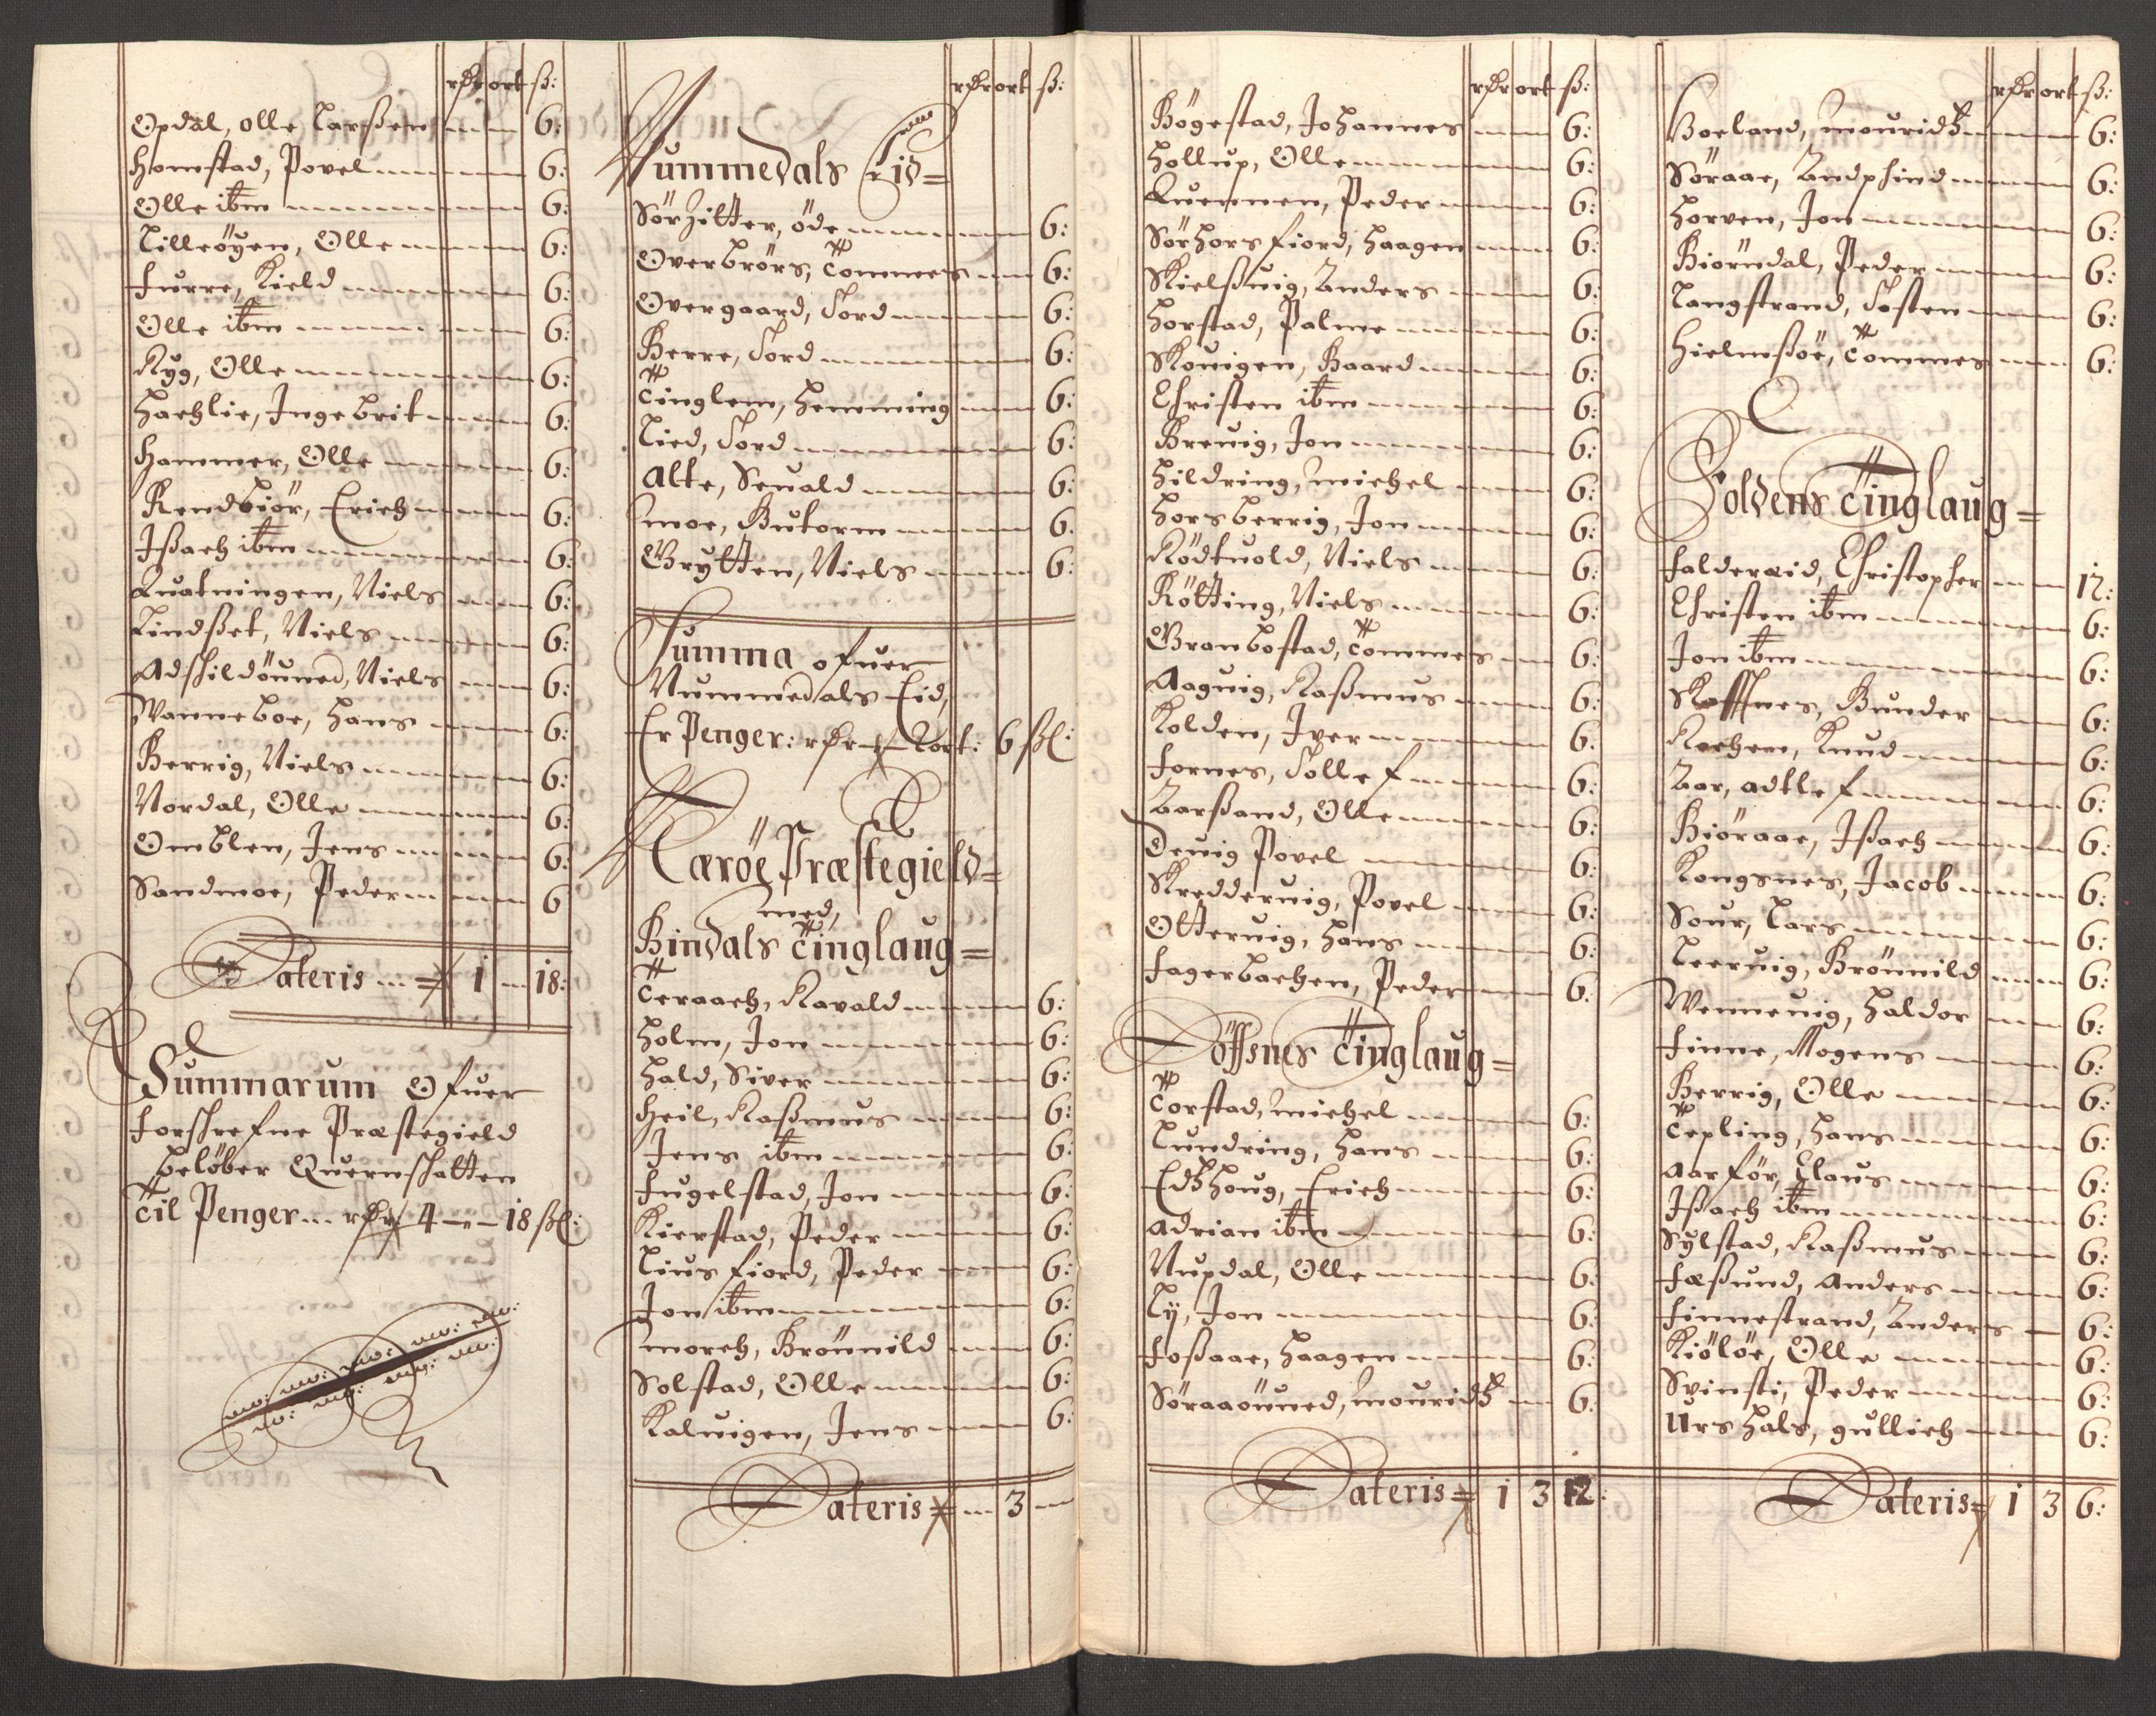 rdr ort ß:
Opdal, olle Larßen 6:
Homstad, Povel 6:
Olle ibm 6:
Lilleöyen, Olle 6:
Furre, Kield 6:
Olle ibm 6:
Ryg, Olle 6:
Hachlie, Ingebrit 6:
Hammer, Olle 6:
Rendbiör, Erich 6:
Ißach ibm 6:
Quatningen, Niels 6:
Lindßet, Niels 6:
Adskildöuned, Niels 6:
Wanneboe, Hans 6:
Berrig, Niels 6:
Nordal, Olle 6:
Omblen, Jens 6:
Sandmoe, Peder 6
Lateris 1 18:
Summarum Ofuer
forskrefne Præstegield
belöber Quernskatten
Til Penger rdr 4 18 ßl:
rdr ort ß:
Nummedals Eid
Sörzitter, öde 6:
Overbrörs, Tommes 6:
Overgaard, Tord 6:
Berre, Tord 6:
Tinglem, Hemming 6:
Lied, Tord 6:
Alte, Seuald 6:
moe, Butorm 6.
Grytten, Niels 6:
Summa ofuer
Nummedals Eid,
Er Penger: rdr 2 ort: 6 ßl:
Næröe Præstegield
med,
Bindals Tinglaug
Teraach, Kavald 6:
Holm, Jon 6:
Hald, Siver 6:
Heil, Raßmus 6:
Jens ibm 6:
Fugelstad, Jon 6:
Kierstad, Peder 6:
Liusfiord, Peder 6:
Jon ibm 6:
moreh, Brönnild 6:
Solstad, Olle 6:
Kalvigen, Jens 6:
Lateris 3
rdr ort ß:
Bögestad, Johannes 6:
Hollup, Olle 6:
Quernen, Peder 6:
Sörhorsfiord, Haagen 6:
Skielßuig, Anders 6:
Horstad, Palme 6:
Skouigen, Baard 6:
Christen ibm 6:
Breuig, Jon 6:
Hildring, michel 6:
Horsberrig, Jon 6:
Rödtuold, Niels 6:
Rötting, Niels 6:
Granbostad, Tommes 6:
Aaguig, Raßmus 6:
Kolden, Iver 6:
Fornes, Tollef 6:
Aarßand, Olle 6:
Deuig Povel 6:
Skredderuig, Povel 6:
Otteruig, Hans 6:
Fagerbachen, Peder 6.
Fössnes Tinglaug
Torstad, michel 6:
Lundring, Hans 6:
Edßhoug, Erich 6:
Adrian ibm 6:
Nupdal, Olle 6:
Ly, Jon 6:
Foßaae, Haagen 6:
Söraaöuned, mouridß 6:
Lateris 1 3 12:
rdr ort ß:
Boeland, mouridß 6:
Söraae, Andphind 6:
Horven, Jon 6:
Biörndal, Peder 6:
Langstrand, Tosten 6:
Hielmsöe, Tommes 6:
Foldens Tinglaug
Falderæid, Christopher 12:
Christen ibm 6:
Jon ibm 6:
Skaffnes, Gunder 6:
Kochem, Knud 6:
Aar, adtlef 6:
Biöraae, Ißach 6:
Kongsnes, Jacob 6:
Sour, Lars 6:
Leervig, Brönnild 6:
Wenneuig, Haldor 6:
Finne, Mogens 6:
Berrig, Olle 6:
Tepling, Hans 6:
Aarför, Claus 6:
Ißach ibm 6:
Sylstad, Raßmus 6:
Fæßund, Anders 6:
Finnestrand, Anders 6:
Kiölöe, Olle 6:
Svinsti, Peder 6:
Urshals, gullich 6:
Lateris 1 3 6: